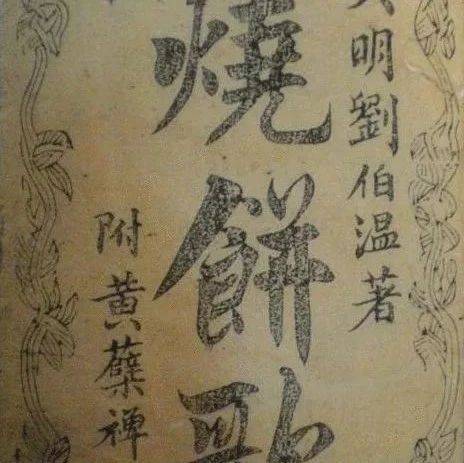 明劉伯温著
燒餅歌
附黄蘗禪